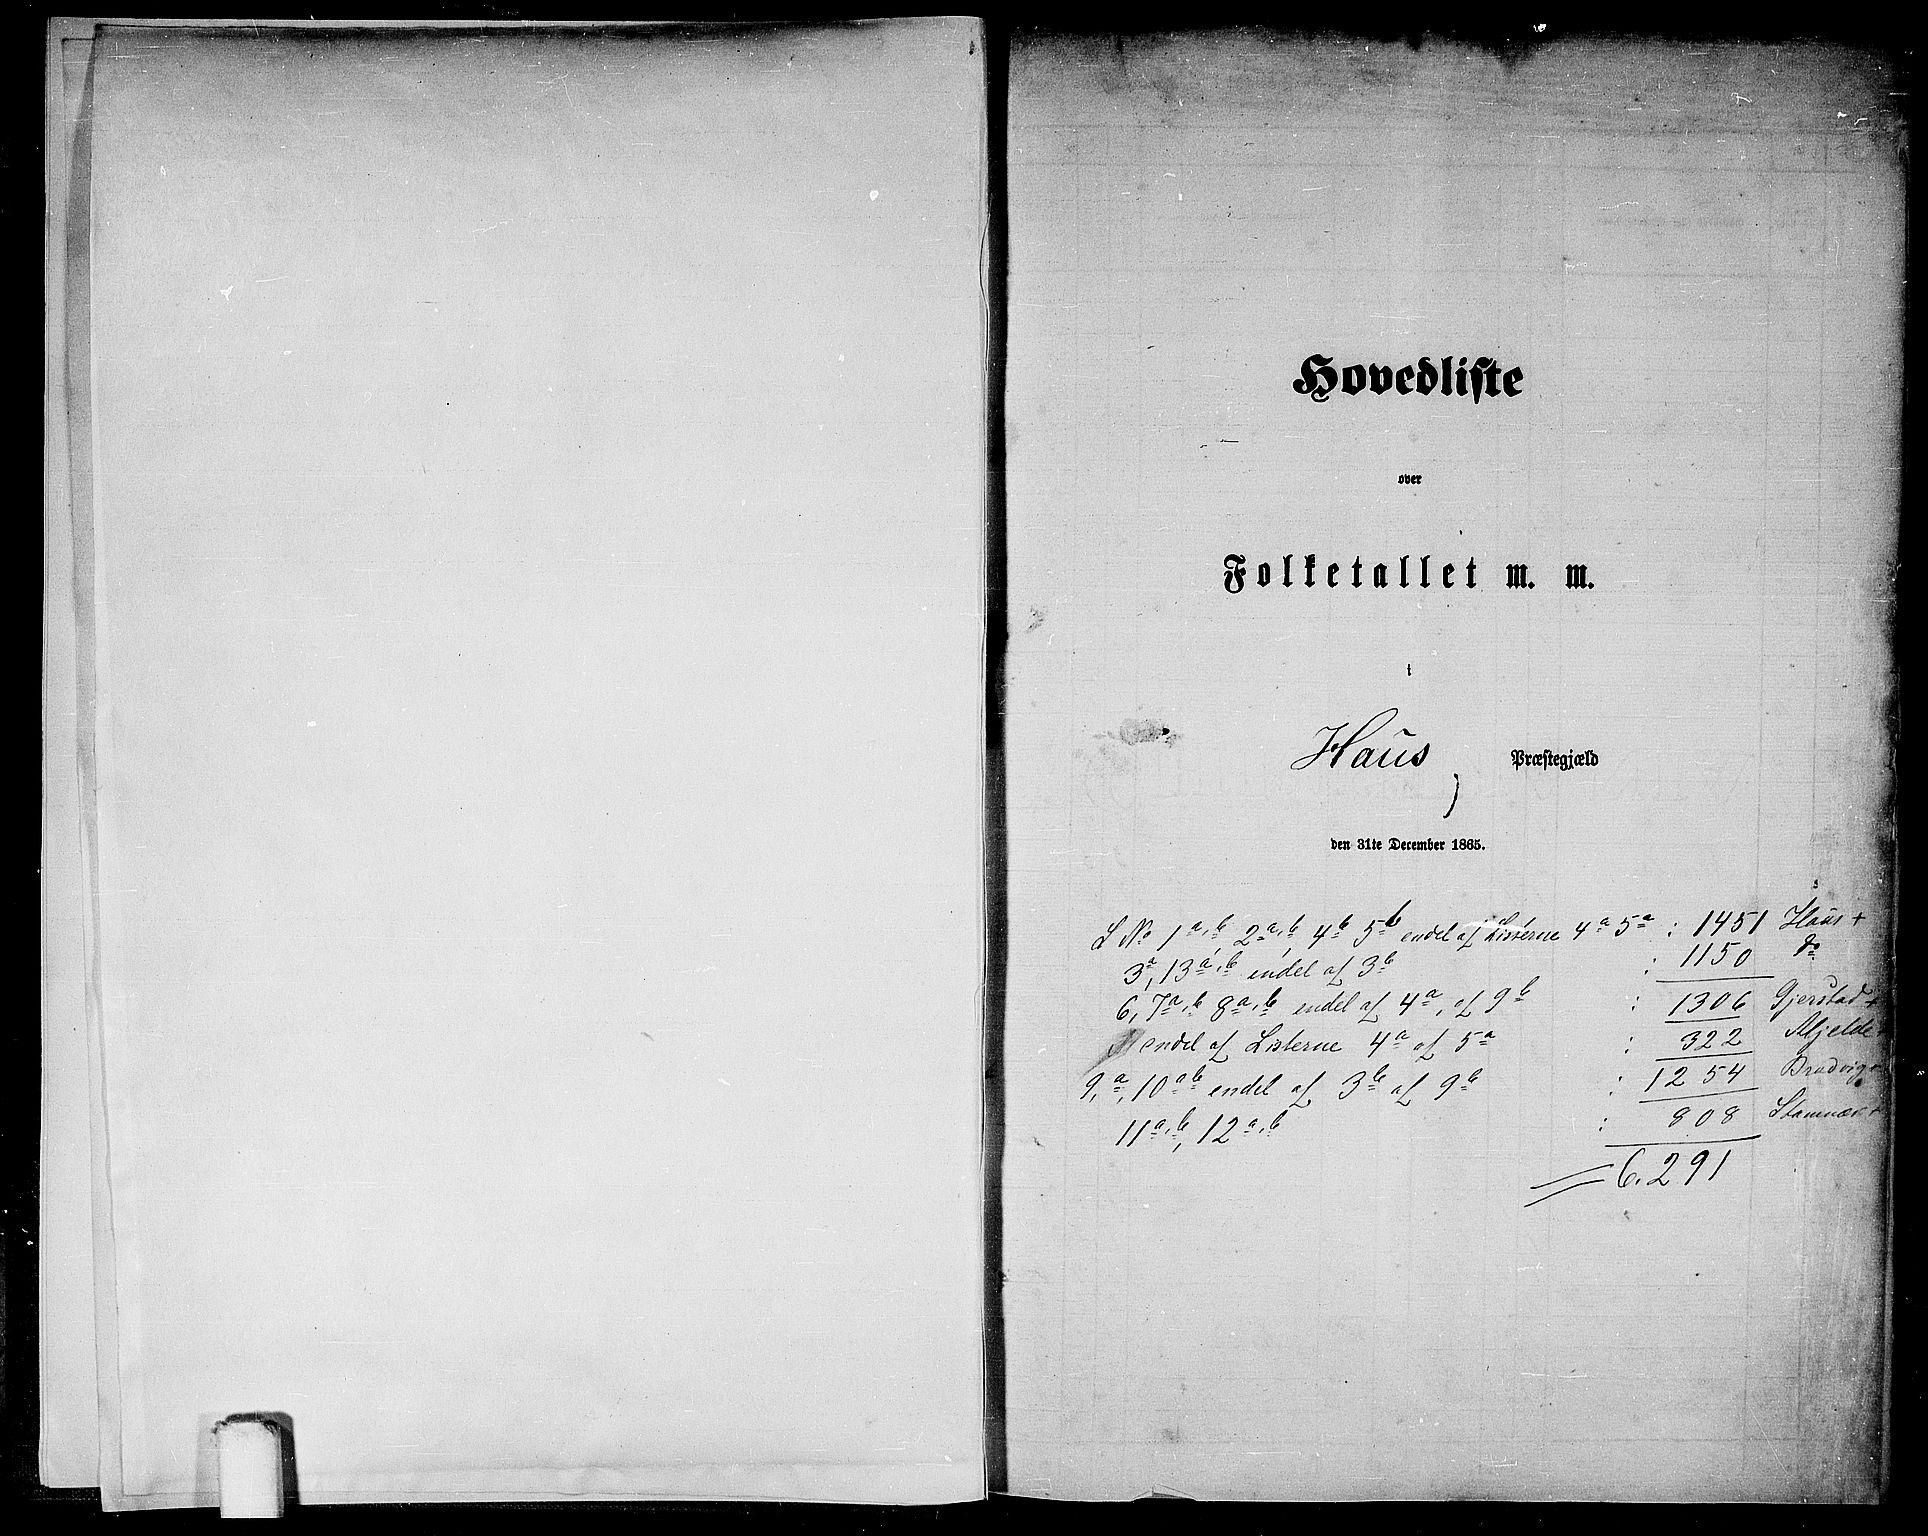 Hovedliste
over
Folketallet m. m.
i
Haus Præstegjæld
den 31te December 1865.
L No 1a,b, 2a,b, 4b 5b endel af Listerne 4a 5a : 1451 Haus +
3a, 13a,b endel af 3b : 1150 do
6, 7a,b 8a,b endel af 4a, af 9b : 1306 Gjerstad +
endel af Listerne 4a af 5a : 322 Mjelde +
9,a, 10ab endel af 3b af 9b : 1254 Bradvig +
11a,b, 12a,b : 808 Stamnæs +
6.291